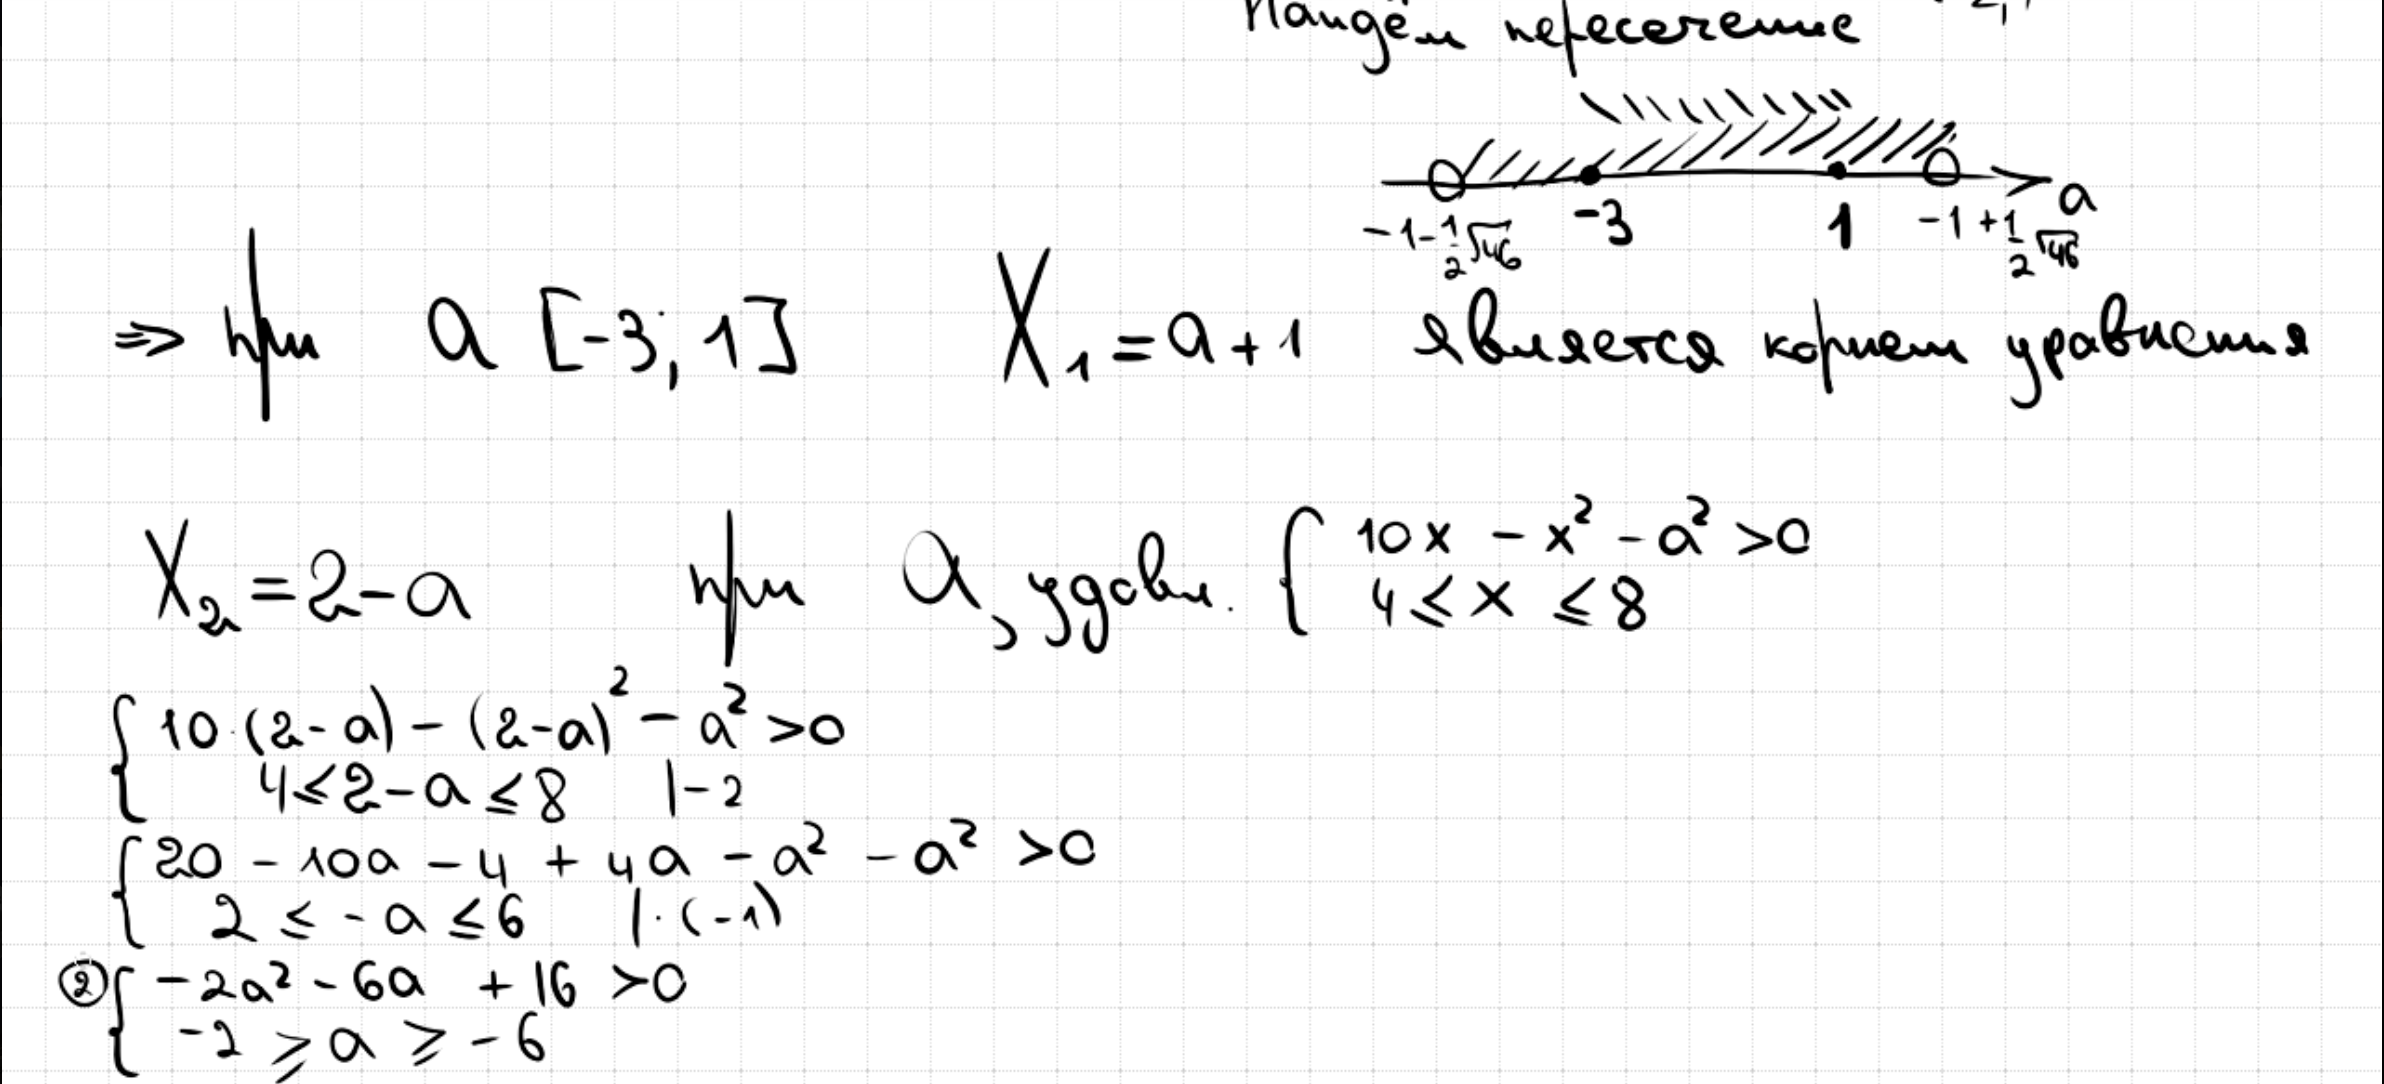 Найдём пересечение
-1-1/2√46 -3 1 -1+1/2√46 a
=> при a [-3; 1] X₁ = a+1 является корнем уравнения
X₂ = 2-a при a, удовл. { 10x - x² - a² > 0
4 ≤ x ≤ 8
{ 10·(2-a) - (2-a)² - a² > 0
4 ≤ 2-a ≤ 8 |-2
{ 20 - 10a - 4 + 4a - a² - a² > 0
2 ≤ -a ≤ 6 |·(-1)
② { -2a² - 6a + 16 > 0
-2 ≥ a ≥ -6